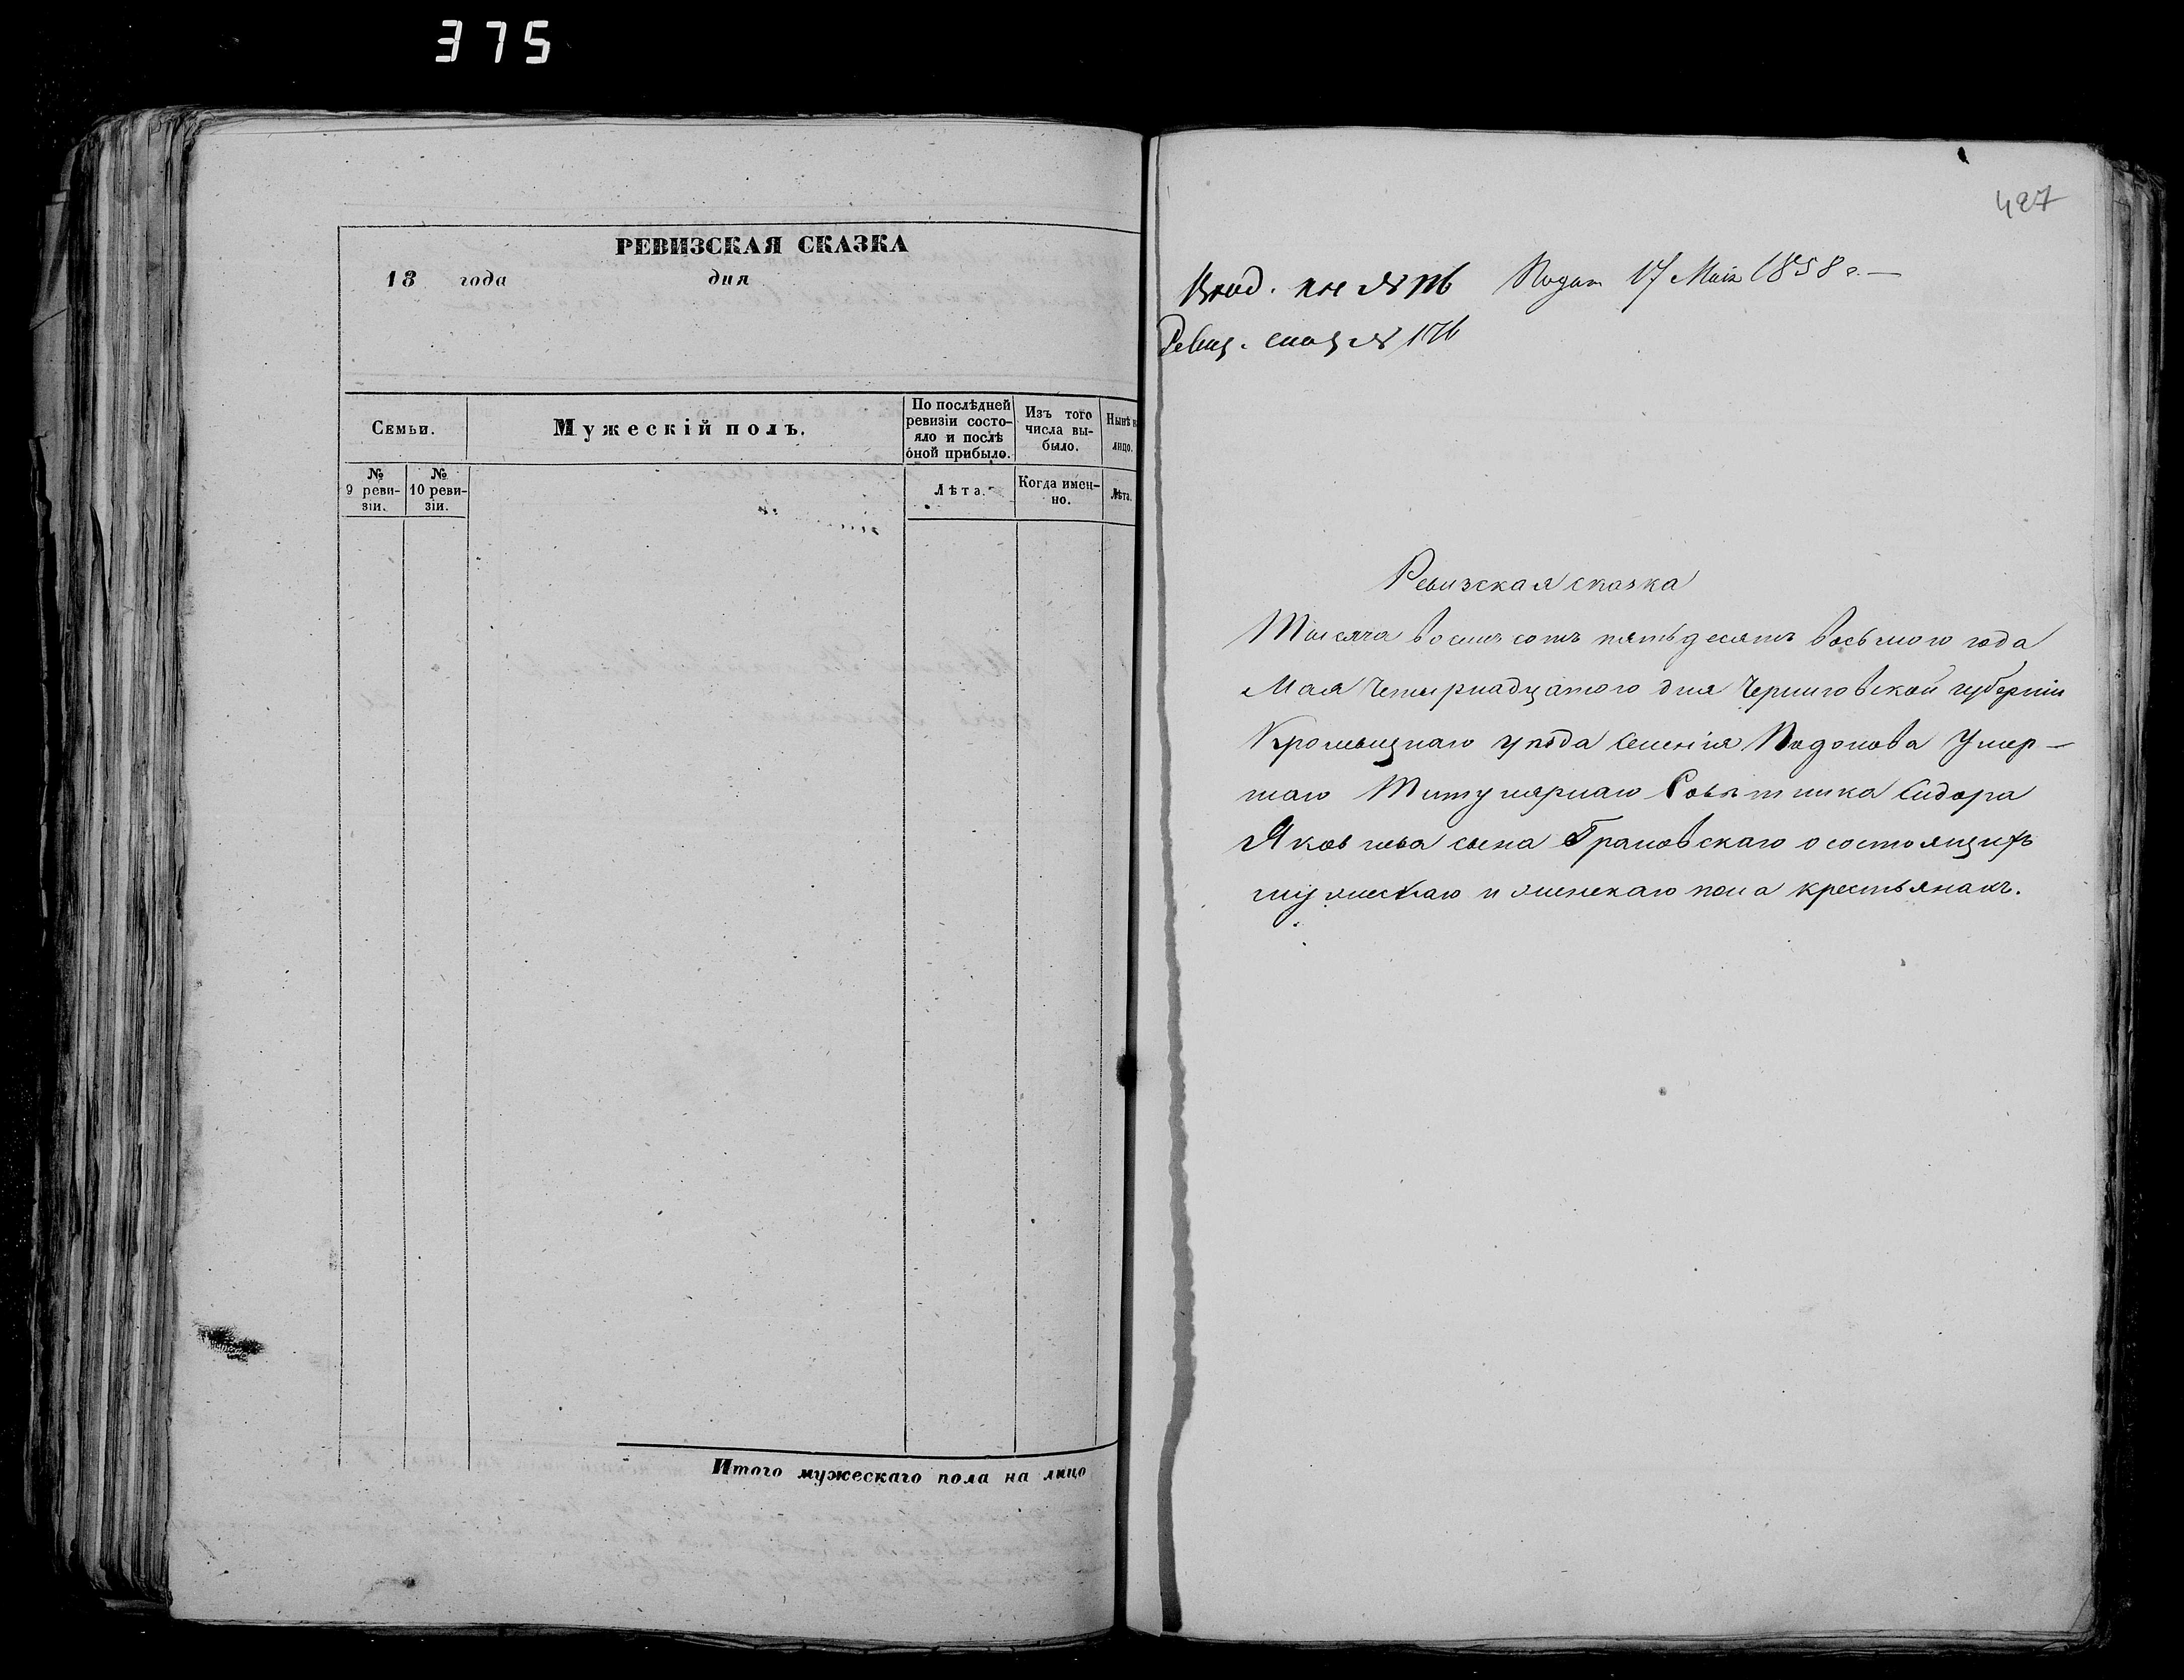 375
РЕВИЗСКАЯ СКАЗКА
18 года дня
Семьи.
Мужескій полъ.
По послѣдней
ревизіи состо-
яло и послѣ
оной прибыло.
Изъ того
числа вы-
было.
Нынѣ
лицо.
№
9 реви-
зіи.
№
10 реви-
зіи.
Лѣта.
Когда имен-
но.
Лѣта.
Итого мужескаго пола на лицо
427
Вход. № 176 Подан 17 Мая 1858 г.—
Ревиз. сказ № 176
Ревизская сказка
Тысяча восемь сотъ пятьдесятъ восьмого года
Мая четырнадцатого дня Черниговской губерніи
Кролевецкаго уѣзда Селенія Подолова Умер-
шаго Титулярнаго Совѣтника Сидора
Яковлева сына Грановскаго о состоящихъ
мужескаго и женскаго пола крестьянахъ.